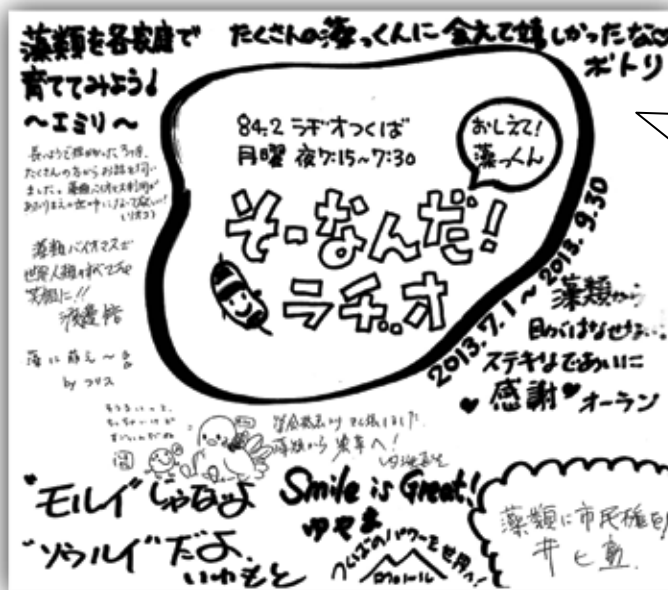 藻類を各家庭で
育ててみよう!
～エミリ～
たくさんの藻っくんに会えて嬉しかったなぁ
ボトリ
84.2 ラヂオつくば
月曜 夜7:15～7:30
おしえて!
藻っくん
そーなんだ!
ラヂオ
2013.7.1～2013.9.30
たくさんの方からお話を伺い
ました。
藻類バイオマスで
世界人類すべてを
笑顔に!!
藻に萌え～
by
藻類から
目がはなせない
ステキなであいに
感謝 オーラン
藻類から
"モルイ"じゃないよ
"ソウルイ"だよ
いわもと
Smile is Great!
ゆやま
つくばのパワーを世界へ!
藻類に市民権を!